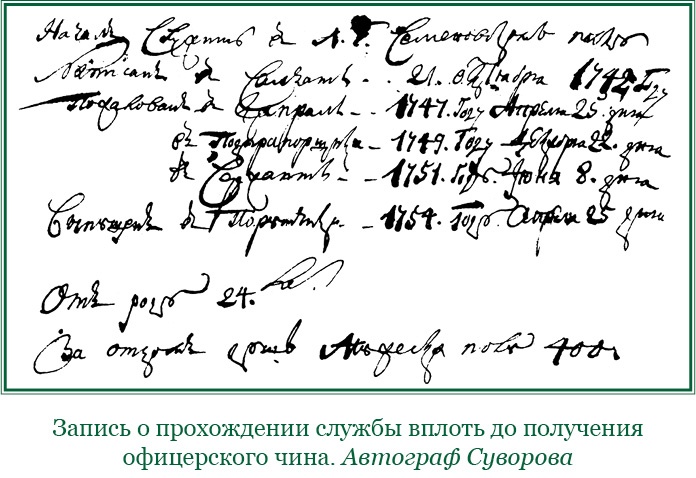 Началъ Служить в Л. Г. Семеновском полку
в Салдаты - - 21. Октября 1742 Году
в Капралы - - 1747. Году Апреля 25. дня
в Подпрапорщики - - 1749. Году 22. дня
в Сержанты - - 1751. Году. Июня 8. дня
в Порутчики - - 1754. Году. Апреля 25 дня
Отъ роду 24.
За отцомъ душъ 400.
Запись о прохождении службы вплоть до получения
офицерского чина. Автограф Суворова